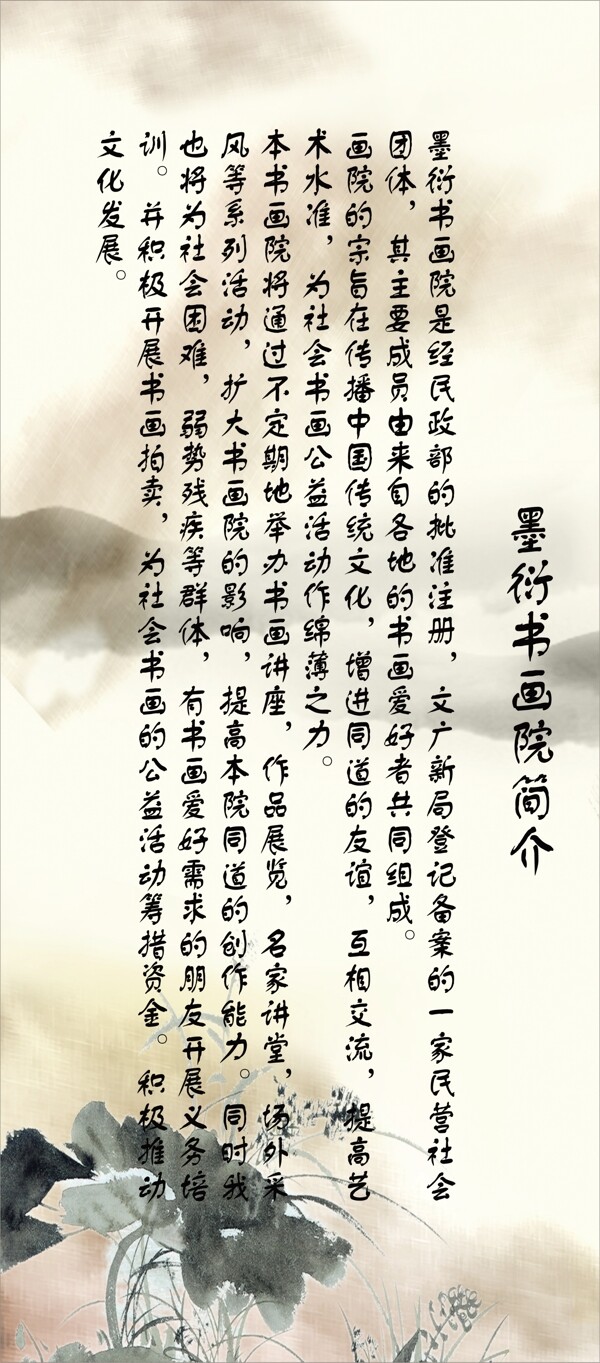 墨衍书画院简介
墨衍书画院是经民政部的批准注册，文广新局登记备案的一家民营社会
团体，其主要成员由来自各地的书画爱好者共同组成。
画院的宗旨在传播中国传统文化，增进同道的友谊，互相交流，提高艺
术水准，为社会书画公益活动作绵薄之力。
本书画院将通过不定期地举办书画讲座，作品展览，名家讲堂，场外采
风等系列活动，扩大书画院的影响，提高本院同道的创作能力。同时我
也将为社会困难，弱势残疾等群体，有书画爱好需求的朋友开展义务培
训。并积极开展书画拍卖，为社会书画的公益活动筹措资金。积极推动
文化发展。